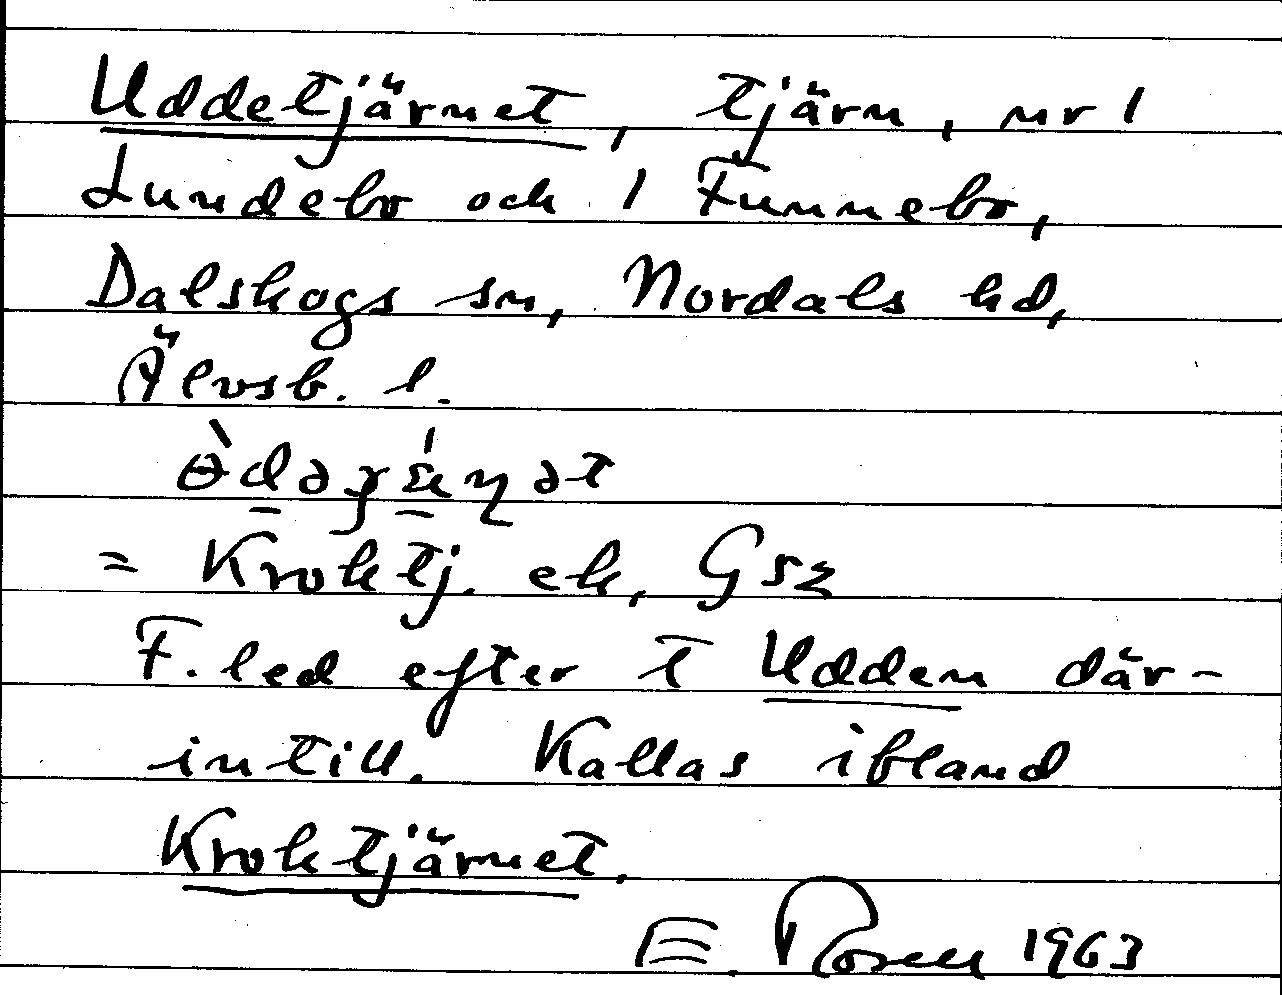 Uddetjärnet, tjärn, nr 1
Lundebo och 1 Funnebo,
Dalskogs sn, Nordals hd,
Älvsb. l.
= Kroktj. ek, Gsz
F. led efter T Udden där-
intill. Kallas ibland
Kroktjärnet.
E. Rosell 1963